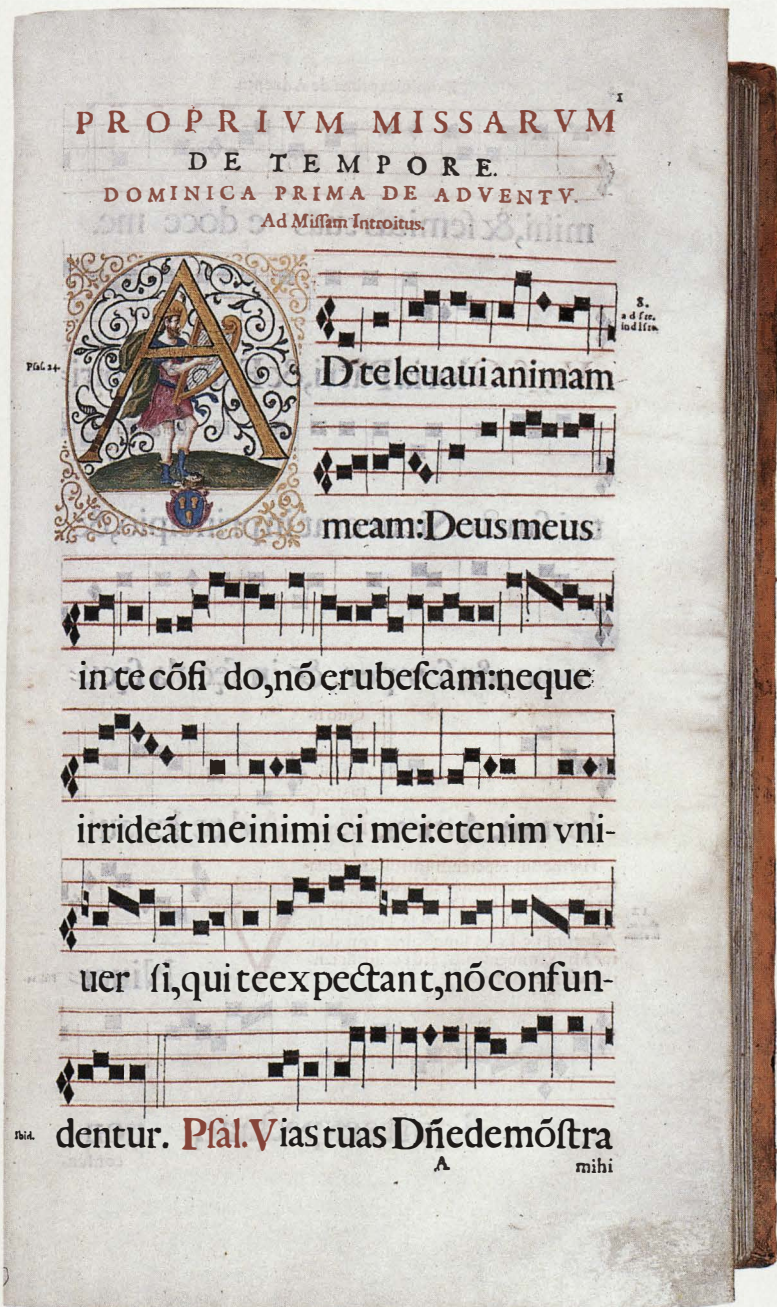 1
PROPRIVM MISSARVM
DE TEMPORE.
DOMINICA PRIMA DE ADVENTV.
Ad Miſſam Introitus.
8.
Pſal. 24.
AD te leuaui animam
meam: Deus meus
in te cõfi do, nõ erubeſcam: neque
irrideãt me inimi ci mei: etenim vni-
uer ſi, qui te expectant, nõ confun-
Ibid.
dentur. Pſal. Vias tuas Dñe demõſtra
A
mihi